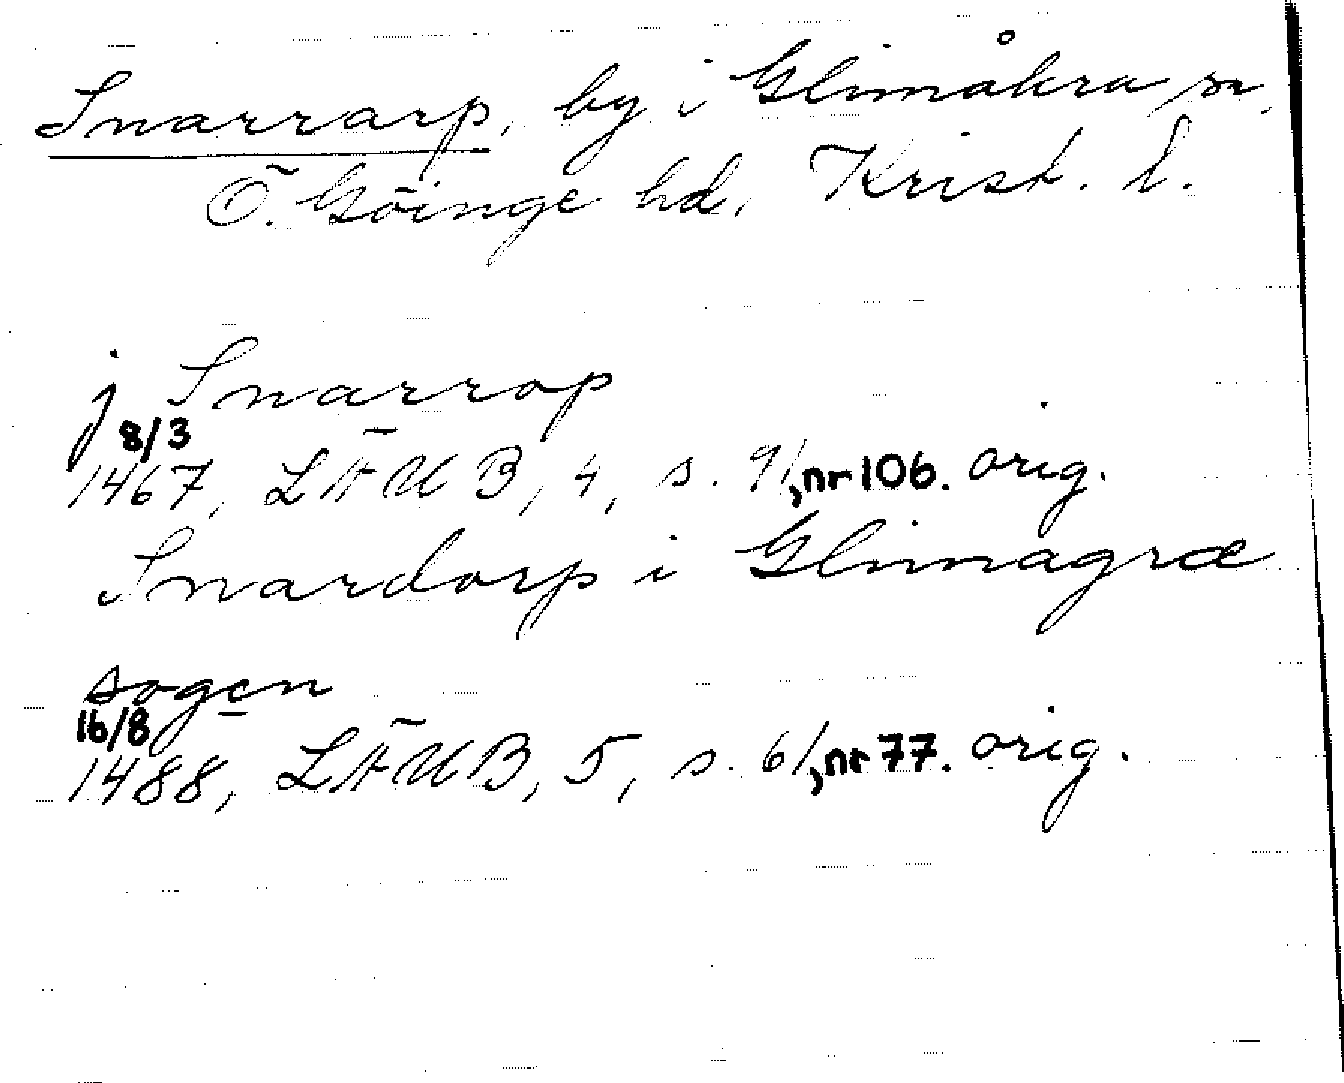 Snarrarp, by i Glimåkra sn,
Ö. Göinge hd, Krist. l.
j Snarrop
8/3
1467, LÄUB, 4, s. 91, nr 106. orig.
Snardorp i Glimagræ
sogen
16/8
1488, LÄUB, 5, s. 61, nr 77. orig.